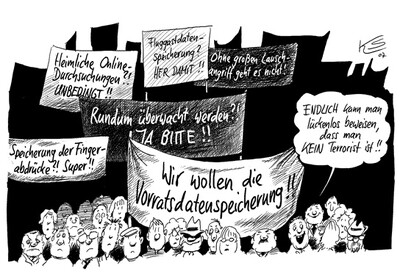 Heimliche Online-
Durchsuchungen?!
UNBEDINGT!!
Fluggastdaten-
speicherung?
HER DAMIT!!
Ohne großen Lausch-
angriff geht es nicht!
Rundum überwacht werden?!
JA BITTE!!
Speicherung der Finger-
abdrücke?! Super!!
Wir wollen die
Vorratsdatenspeicherung!!
ENDLICH kann man
lückenlos beweisen,
dass man
KEIN Terrorist ist!!
07